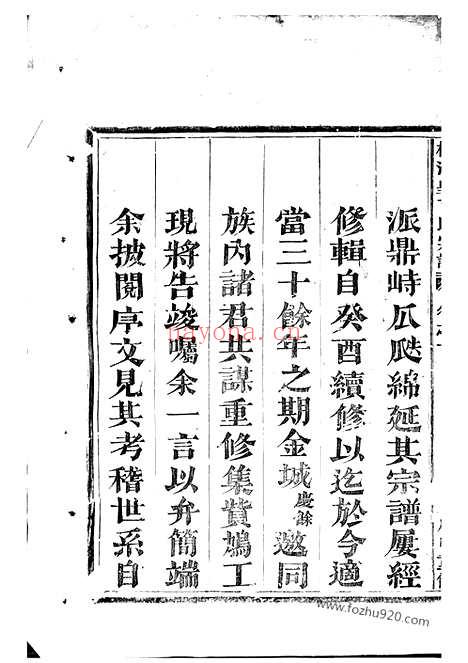 派鼎峙瓜瓞綿延其宗譜屢經
修輯自癸酉續修以迄於今適
當三十餘年之期金城慶餘邀同
族內諸君共謀重修集貲鳩工
現將告竣囑余一言以弁簡端
余披閱序文見其考稽世系自
nayona.cn
www.fozhu920.com